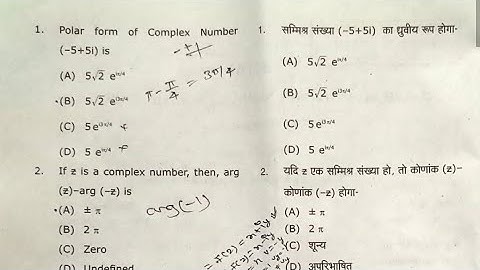 1. Polar form of Complex Number
(-5+5i) is
(A) 5√2 e^{iπ/4}
(B) 5√2 e^{i3π/4}
(C) 5 e^{i3π/4}
(D) 5 e^{iπ/4}
π - π/4 = 3π/4
2. If z is a complex number, then, arg
(z)–arg (-z) is
(A) ± π
(B) 2 π
(C) Zero
(D) Undefined
arg(-1)
1. सम्मिश्र संख्या (-5+5i) का ध्रुवीय रूप होगा-
(A) 5√2 e^{iπ/4}
(B) 5√2 e^{i3π/4}
(C) 5 e^{i3π/4}
(D) 5 e^{iπ/4}
2. यदि z एक सम्मिश्र संख्या हो, तो कोणांक (z)–
कोणांक (-z) होगा-
(A) ± π
(B) 2 π
(C) शून्य
(D) अपरिभाषित